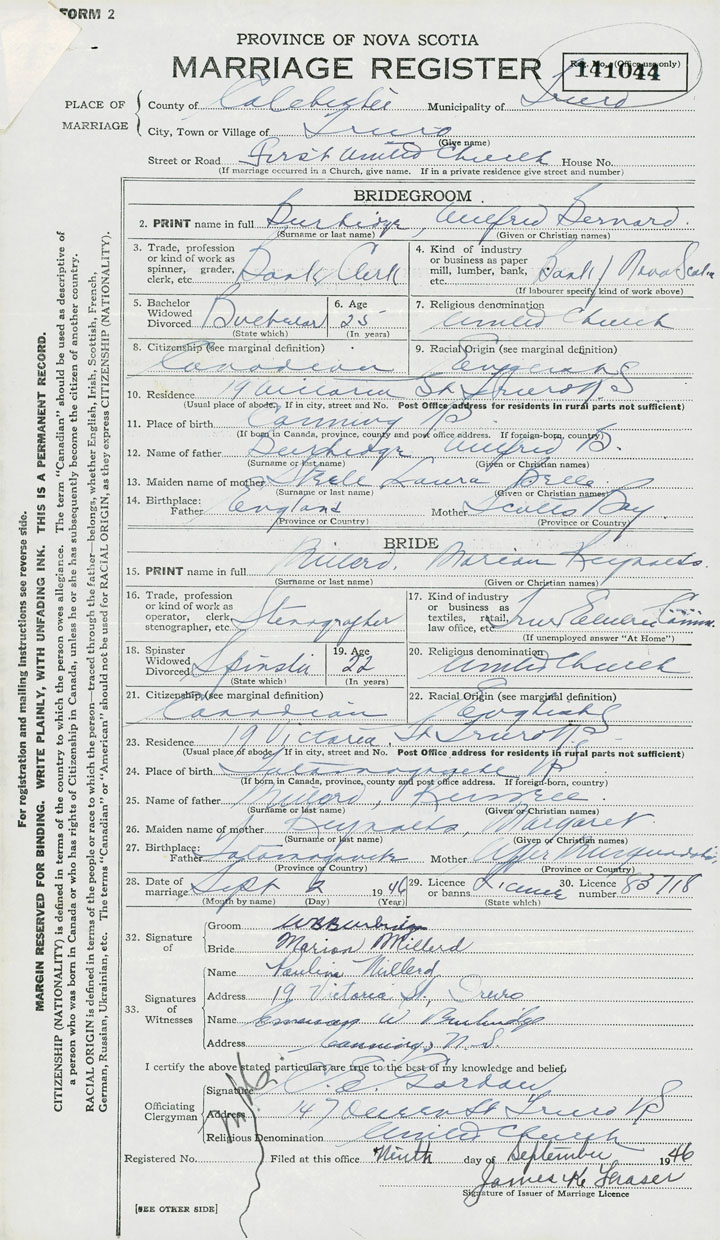 FORM 2
PROVINCE OF NOVA SCOTIA
MARRIAGE REGISTER
Reg. No. (Office use only)
141044
PLACE OF MARRIAGE
County of Colchester Municipality of Truro
City, Town or Village of Truro
(Give name)
Street or Road First United Church House No.
(If marriage occurred in a Church, give name. If in a private residence give street and number)
BRIDEGROOM
2. PRINT name in full Burbidge, Wilfred Bernard.
(Surname or last name) (Given or Christian names)
3. Trade, profession or kind of work as spinner, grader, clerk, etc. Bank Clerk
4. Kind of industry or business as paper mill, lumber, bank, etc. Bank / Nova Scotia
(If labourer specify kind of work above)
5. Bachelor Widowed Divorced Bachelor
(State which)
6. Age 25
(In years)
7. Religious denomination
United Church
8. Citizenship (see marginal definition)
Canadian
9. Racial Origin (see marginal definition)
English
10. Residence 19 Victoria St Truro NS
(Usual place of abode. If in city, street and No. Post Office address for residents in rural parts not sufficient)
11. Place of birth Canning NS
(If born in Canada, province, county and post office address. If foreign-born, country)
12. Name of father Burbidge Wilfred B.
(Surname or last name) (Given or Christian names)
13. Maiden name of mother Steele Laura Bella
(Surname or last name) (Given or Christian names)
14. Birthplace: Father England Mother Scotts Bay
(Province or Country) (Province or Country)
BRIDE
15. PRINT name in full Millerd, Marion Reynolds.
(Surname or last name) (Given or Christian names)
16. Trade, profession or kind of work as operator, clerk, stenographer, etc. Stenographer
17. Kind of industry or business as textiles, retail, law office, etc.
(If unemployed answer "At Home")
18. Spinster Widowed Divorced Spinster
(State which)
19. Age 22
(In years)
20. Religious denomination
United Church
21. Citizenship (see marginal definition)
Canadian
22. Racial Origin (see marginal definition)
English
23. Residence 19 Victoria St Truro NS
(Usual place of abode. If in city, street and No. Post Office address for residents in rural parts not sufficient)
24. Place of birth
(If born in Canada, province, county and post office address. If foreign-born, country)
25. Name of father Millerd, Russell
(Surname or last name) (Given or Christian names)
26. Maiden name of mother Reynolds, Margaret
(Surname or last name) (Given or Christian names)
27. Birthplace: Father Mother Upper
(Province or Country) (Province or Country)
28. Date of marriage Sept 2 1946
(Month by name) (Day) (Year)
29. Licence or banns Licence
(State which)
30. Licence number 83718
32. Signature of
Groom WBBurbidge
Bride Marion Millerd
33. Signatures of Witnesses
Name Pauline Millerd
Address 19 Victoria St, Truro
Name Emerson W Burbidge
Address Canning, N.S.
I certify the above stated particulars are true to the best of my knowledge and belief.
Officiating Clergyman
Signature Gordon
Address 47 Queen St Truro NS
Religious Denomination United Church
Registered No. Filed at this office Ninth day of September 1946
James K Fraser
Signature of Issuer of Marriage Licence
[SEE OTHER SIDE]
For registration and mailing instructions see reverse side.
MARGIN RESERVED FOR BINDING. WRITE PLAINLY, WITH UNFADING INK. THIS IS A PERMANENT RECORD.
CITIZENSHIP (NATIONALITY) is defined in terms of the country to which the person owes allegiance. The term "Canadian" should be used as descriptive of
a person who was born in Canada or who has rights of Citizenship in Canada, unless he or she has subsequently become the citizen of another country.
RACIAL ORIGIN is defined in terms of the people or race to which the person—traced through the father—belongs, whether English, Irish, Scottish, French,
German, Russian, Ukrainian, etc. The terms "Canadian" or "American" should not be used for RACIAL ORIGIN, as they express CITIZENSHIP (NATIONALITY).